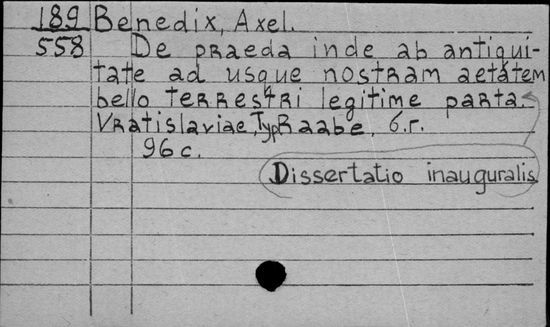 189 Benedix, Axel.
558 De praeda inde ab antiqui-
tate ad usque nostram aetatem
bello terrestri legitime parta.
Vratislaviae, Typ Raabe, б.г.
96 с.
Dissertatio inauguralis